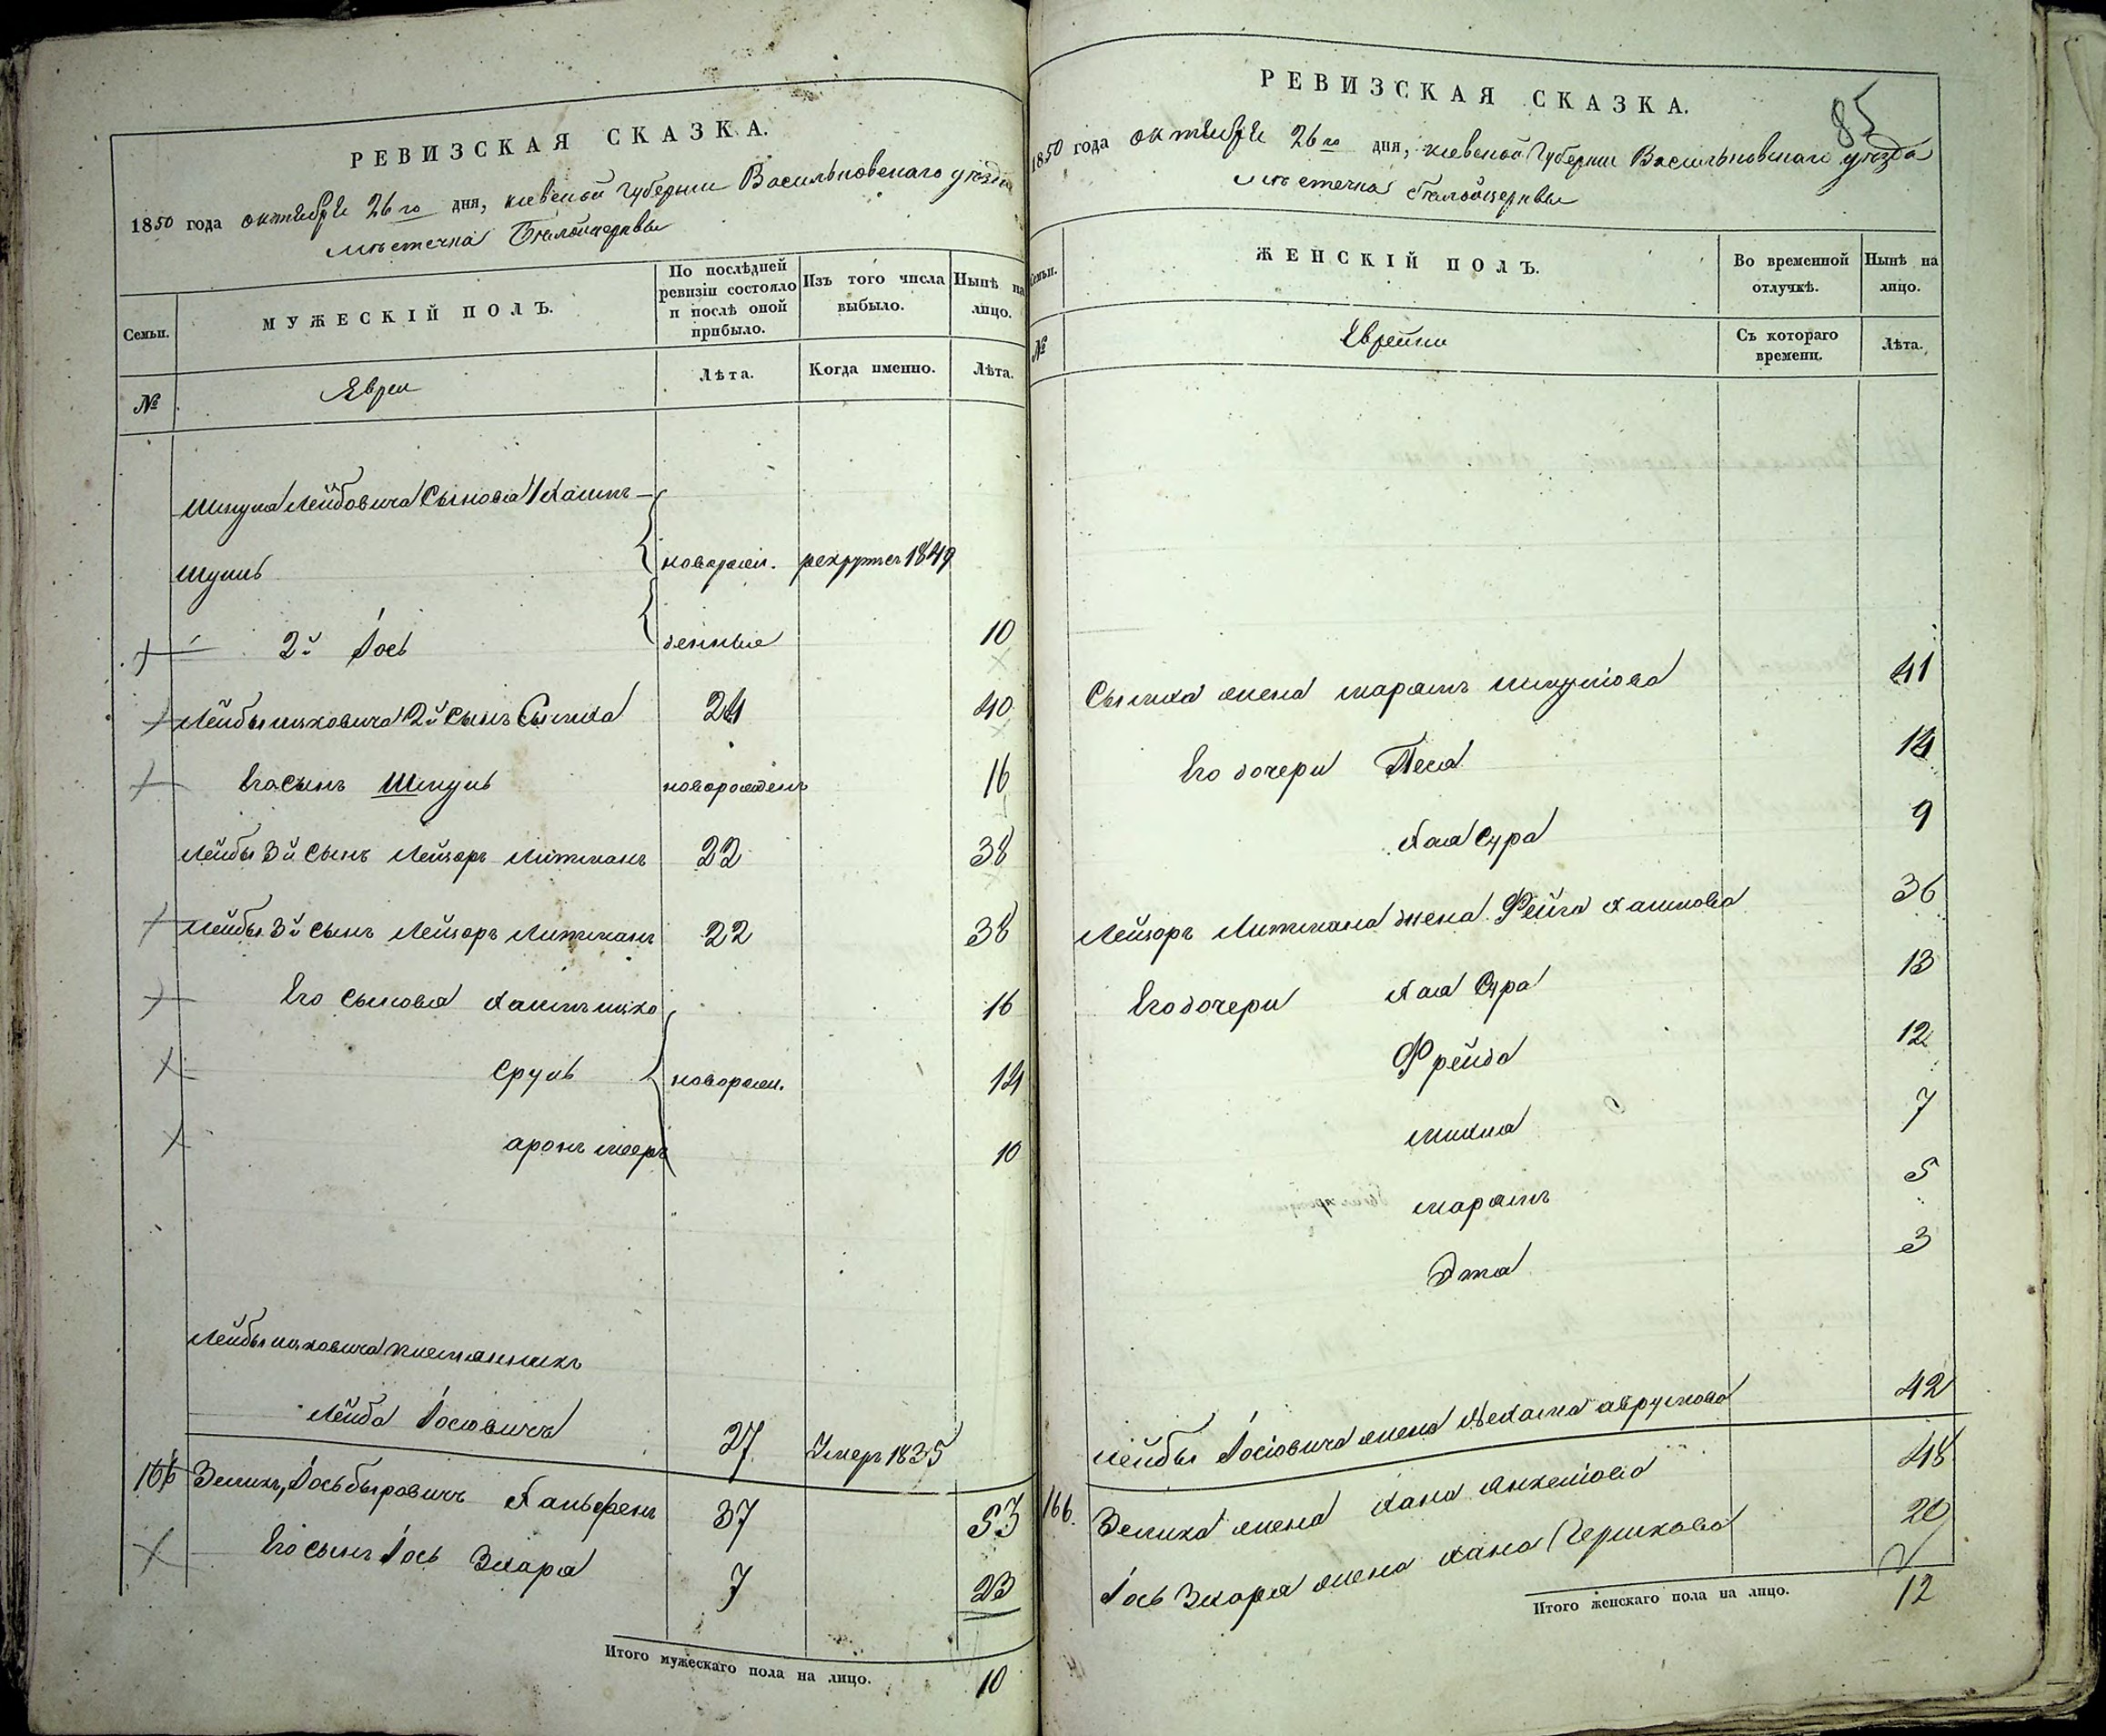 РЕВИЗСКАЯ СКАЗКА.
1850 года октября 26го дня, Киевской Губернии Васильковского уезда
местечка Белойцеркви
Семьи.
МУЖЕСКІЙ ПОЛЪ.
По послѣдней ревизіи состояло и послѣ оной прибыло.
Изъ того числа выбыло.
Нынѣ на лицо.
№
Евреи
Лѣта.
Когда именно.
Лѣта.
Шмуля Лейбовича Сыновья 1 Хаимъ
Шмуль новорож. рекрутъ 1849
2й Іось денные 10
Лейбы Ицковича 2й Сынъ Сымха 24 40
Его сынъ Шмуль новорожденъ 16
Лейбы 3й Сынъ Лейзоръ Литманъ 22 38
Лейбы 3й Сынъ Лейзоръ Литманъ 22 38
Его Сыновья Хаимъ Ицко 16
Сруль новорож. 14
Аронъ Мееръ 10
Лейбы Ицковича племянникъ
Лейба Іосiовичъ 27 Умеръ 1835
166 Зеликъ, Іосьбыровичъ Хальфенъ 37 53
Его сынъ Іось Зхаря 7 23
Итого мужескаго пола на лицо. 10
РЕВИЗСКАЯ СКАЗКА.
85
1850 года октября 26го дня, Киевской Губернии Васильковскаго уезда
местечка Белойцеркви
Семьи.
ЖЕНСКІЙ ПОЛЪ.
Во временной отлучкѣ.
Нынѣ на лицо.
№
Еврейки
Съ котораго времени.
Лѣта.
Сымха жена Марьямъ Шмулiова 41
Его дочери Песа 14
Хая Сура 9
Лейзоръ Литмана жена Фейга Хаимова 36
Его дочери Хая Сура 13
Фрейда 12
7
Марьямъ 5
Эта 3
Лейбы Іосiовича жена Нехама Аврумова 42
166. Зелика жена Хана Янкелiова 48
Іось Зхаря жена Хана Гершкова 20
Итого женскаго пола на лицо. 12